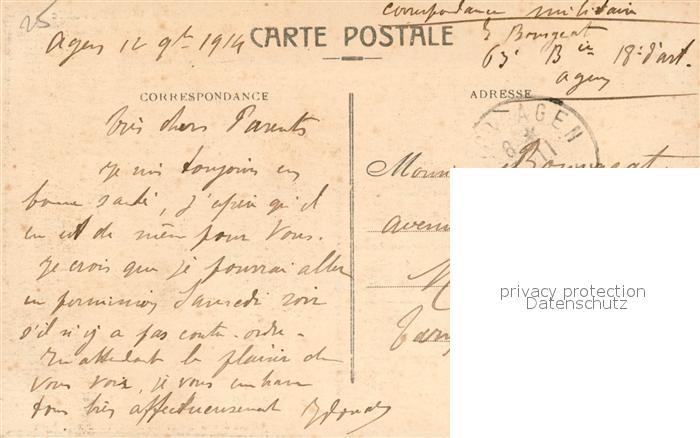 25
correspondance militaire
Agen 12 9bre 1914 CARTE POSTALE
Bourgeat
63e Bie 18e d'art.
Agen
CORRESPONDANCE
ADRESSE
AGEN
8 11
Très chers Parents
Je suis toujours en
bonne santé, j'espère qu'il
en est de même pour vous.
Je crois que je pourrai aller
en permission Samedi soir
s'il n'y a pas contre-ordre.
En attendant le plaisir de
vous voir, je vous embrasse
tous très affectueusement
Bourgeat
privacy protection
Datenschutz